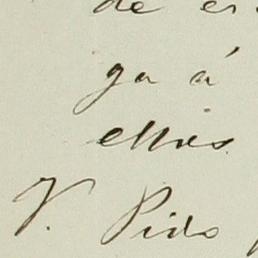 de es
ga á
ellos
V. Pido